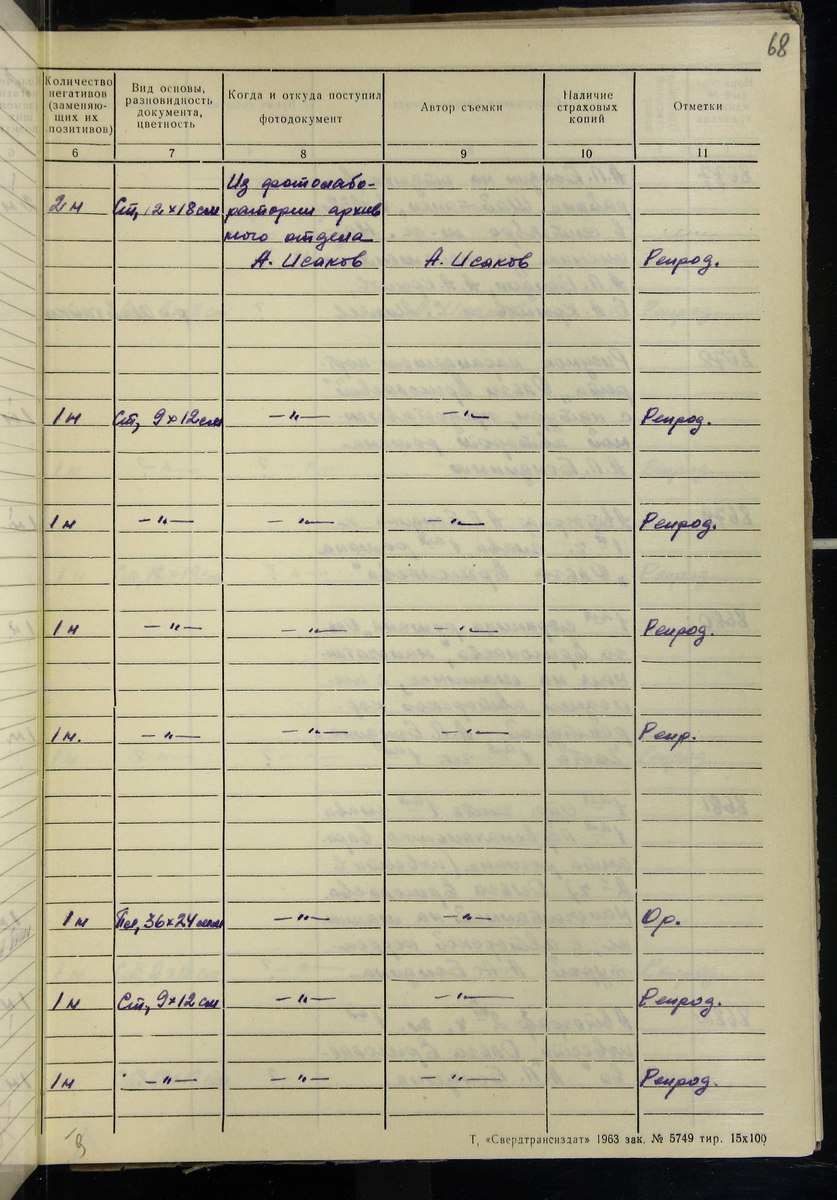 68
Количество негативов (заменяю- щих их позитивов)
Вид основы, разновидность документа, цветность
Когда и откуда поступил фотодокумент
Автор съемки
Наличие страховых копий
Отметки
6 7 8 9 10 11
Из фотолабо-
2 н Ст, 12×18 см ратории архив
ного отдела
А. Исаков А. Исаков Репрод.
1 н Ст, 9×12 см —"— —"— Репрод.
1 н —"— —"— —"— Репрод.
1 н —"— —"— —"— Репрод.
1 н. —"— —"— —"— Репр.
1 н Пл, 36×24 мм —"— —"— Ор.
1 н Ст, 9×12 см —"— —"— Репрод.
1 н —"— —"— —"— Репрод.
Т, «Свердтрансиздат» 1963 зак. № 5749 тир. 15х100